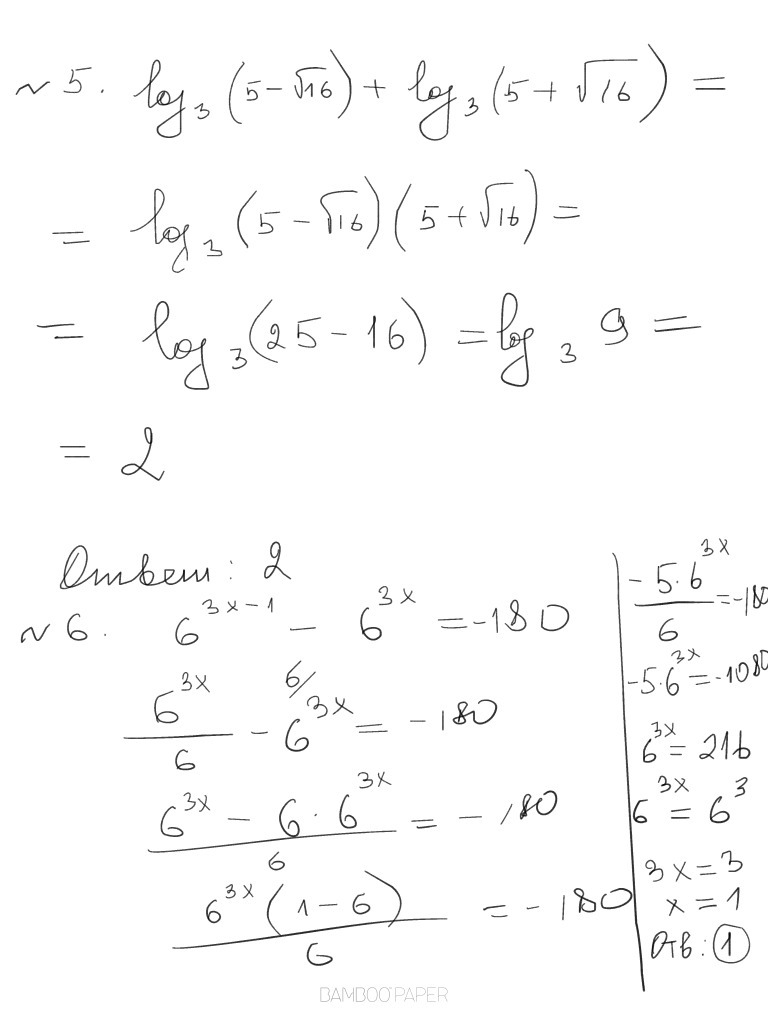 ~ 5. log₃(5-√16) + log₃(5+√16) =
= log₃(5-√16)(5+√16) =
= log₃(25-16) = log₃ 9 =
= 2
Ответ: 2
~ 6. 6^(3x-1) - 6^(3x) = -180
6^(3x)/6 - 6/ 6^(3x) = -180
(6^(3x) - 6·6^(3x))/6 = -180
6^(3x)(1-6)/6 = -180
-5·6^(3x)/6 = -180
-5·6^(3x) = -1080
6^(3x) = 216
6^(3x) = 6^3
3x = 3
x = 1
Отв: 1
BAMBOO PAPER